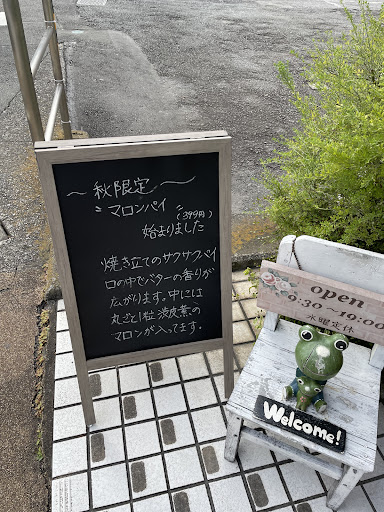 ～秋限定～
〝マロンパイ〟
(399円)
始まりました
焼き立てのサクサクパイ
口の中でバターの香りが
広がります。中には
丸ごと1粒 渋皮煮の
マロンが入ってます。
open
9:30~10:00
水曜定休
Welcome!